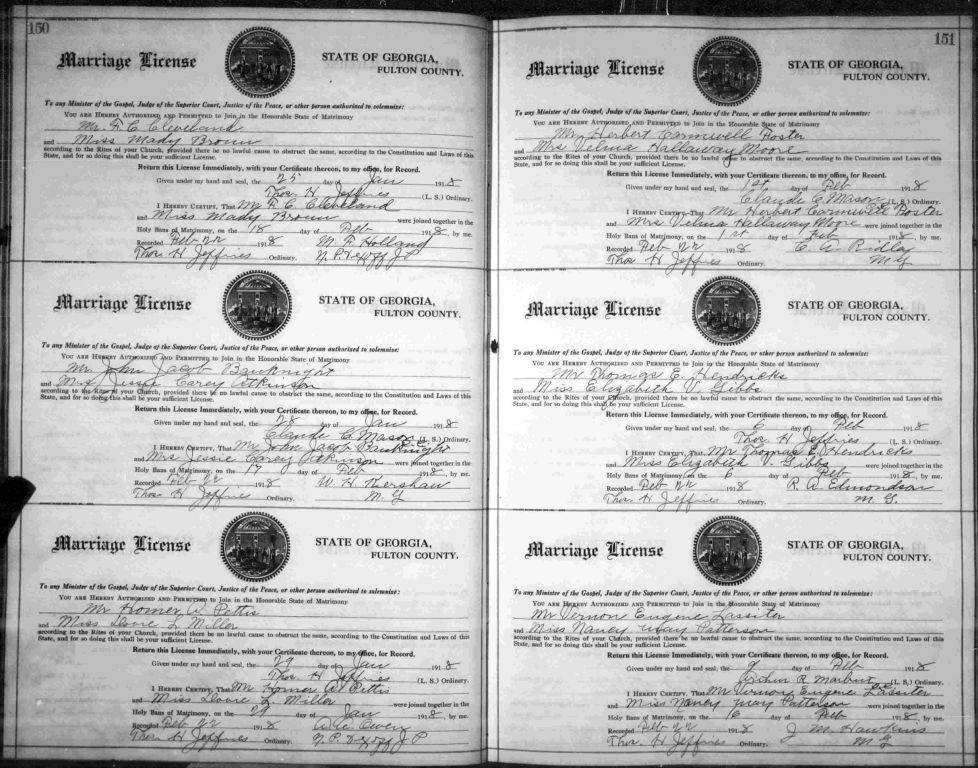 150
Marriage License
STATE OF GEORGIA,
FULTON COUNTY.
To any Minister of the Gospel, Judge of the Superior Court, Justice of the Peace, or other person authorized to solemnize:
YOU ARE HEREBY AUTHORIZED AND PERMITTED to Join in the Honorable State of Matrimony
Mr. F. C. Cleveland
and Miss Mady Brown
according to the Rites of your Church, provided there be no lawful cause to obstruct the same, according to the Constitution and Laws of this
State, and for so doing this shall be your sufficient License.
Return this License Immediately, with your Certificate thereon, to my office, for Record.
Given under my hand and seal, the 25 day of Jan 1918
Thos. H Jeffries (L. S.) Ordinary.
I HEREBY CERTIFY, That Mr F. C. Cleveland
and Miss Mady Brown were joined together in the
Holy Bans of Matrimony, on the 18 day of Feb 1918, by me.
Recorded Feb 22 1918 M. F. Holland
Thos H Jeffries Ordinary. J P
Marriage License
STATE OF GEORGIA,
FULTON COUNTY.
To any Minister of the Gospel, Judge of the Superior Court, Justice of the Peace, or other person authorized to solemnize:
YOU ARE HEREBY AUTHORIZED AND PERMITTED to Join in the Honorable State of Matrimony
Mr. John Jacob Bauknight
and Mrs Jessie Carey Atkinson
according to the Rites of your Church, provided there be no lawful cause to obstruct the same, according to the Constitution and Laws of this
State, and for so doing this shall be your sufficient License.
Return this License Immediately, with your Certificate thereon, to my office, for Record.
Given under my hand and seal, the 28 day of Jan 1918
Claude C. Mason (L. S.) Ordinary.
I HEREBY CERTIFY, That Mr John Jacob Bauknight
and Mrs Jessie Carey Atkinson were joined together in the
Holy Bans of Matrimony, on the 17 day of Feb 1918, by me.
Recorded Feb 22 1918 W. H. Kershaw
Thos H Jeffries Ordinary. M. G
Marriage License
STATE OF GEORGIA,
FULTON COUNTY.
To any Minister of the Gospel, Judge of the Superior Court, Justice of the Peace, or other person authorized to solemnize:
YOU ARE HEREBY AUTHORIZED AND PERMITTED to Join in the Honorable State of Matrimony
Mr Homer W Pettis
and Miss Dovie L Miller
according to the Rites of your Church, provided there be no lawful cause to obstruct the same, according to the Constitution and Laws of this
State, and for so doing this shall be your sufficient License.
Return this License Immediately, with your Certificate thereon, to my office, for Record.
Given under my hand and seal, the 29 day of Jan 1918
Thos. H Jeffries (L. S.) Ordinary.
I HEREBY CERTIFY, That Mr Homer W Pettis
and Miss Dovie L Miller were joined together in the
Holy Bans of Matrimony, on the 29 day of Jan 1918, by me.
Recorded Feb 22 1918 Owen
Thos H Jeffries Ordinary. J P
151
Marriage License
STATE OF GEORGIA,
FULTON COUNTY.
To any Minister of the Gospel, Judge of the Superior Court, Justice of the Peace, or other person authorized to solemnize:
YOU ARE HEREBY AUTHORIZED AND PERMITTED to Join in the Honorable State of Matrimony
Mr Herbert Canniwell Foster
and Mrs Velma Hallaway Moore
according to the Rites of your Church, provided there be no lawful cause to obstruct the same, according to the Constitution and Laws of this
State, and for so doing this shall be your sufficient License.
Return this License Immediately, with your Certificate thereon, to my office, for Record.
Given under my hand and seal, the 1st day of Feb 1918
Claude C Mason (L. S.) Ordinary.
I HEREBY CERTIFY, That Mr Herbert Canniwell Foster
and Mrs Velma Hallaway Moore were joined together in the
Holy Bans of Matrimony, on the 1st day of Feb 1918, by me.
Recorded Feb 22 1918 C. A. Ridley
Thos H Jeffries Ordinary. M G
Marriage License
STATE OF GEORGIA,
FULTON COUNTY.
To any Minister of the Gospel, Judge of the Superior Court, Justice of the Peace, or other person authorized to solemnize:
YOU ARE HEREBY AUTHORIZED AND PERMITTED to Join in the Honorable State of Matrimony
Mr Thomas E. Hendricks
and Miss Elizabeth V. Gibbs
according to the Rites of your Church, provided there be no lawful cause to obstruct the same, according to the Constitution and Laws of this
State, and for so doing this shall be your sufficient License.
Return this License Immediately, with your Certificate thereon, to my office, for Record.
Given under my hand and seal, the 6 day of Feb 1918
Thos H Jeffries (L. S.) Ordinary.
I HEREBY CERTIFY, That Mr Thomas E. Hendricks
and Miss Elizabeth V. Gibbs were joined together in the
Holy Bans of Matrimony, on the 6 day of Feb 1918, by me.
Recorded Feb 22 1918 R. A. Edmondson
Thos. H Jeffries Ordinary. M. G.
Marriage License
STATE OF GEORGIA,
FULTON COUNTY.
To any Minister of the Gospel, Judge of the Superior Court, Justice of the Peace, or other person authorized to solemnize:
YOU ARE HEREBY AUTHORIZED AND PERMITTED to Join in the Honorable State of Matrimony
Mr Vernon Eugene Lassiter
and Miss Nancy May Patterson
according to the Rites of your Church, provided there be no lawful cause to obstruct the same, according to the Constitution and Laws of this
State, and for so doing this shall be your sufficient License.
Return this License Immediately, with your Certificate thereon, to my office, for Record.
Given under my hand and seal, the 9 day of Feb 1918
Arthur R Marbut (L. S.) Ordinary.
I HEREBY CERTIFY, That Mr Vernon Eugene Lassiter
and Miss Nancy May Patterson were joined together in the
Holy Bans of Matrimony, on the 16 day of Feb 1918, by me.
Recorded Feb 22 1918 J M. Hawkins
Thos. H Jeffries Ordinary. M G